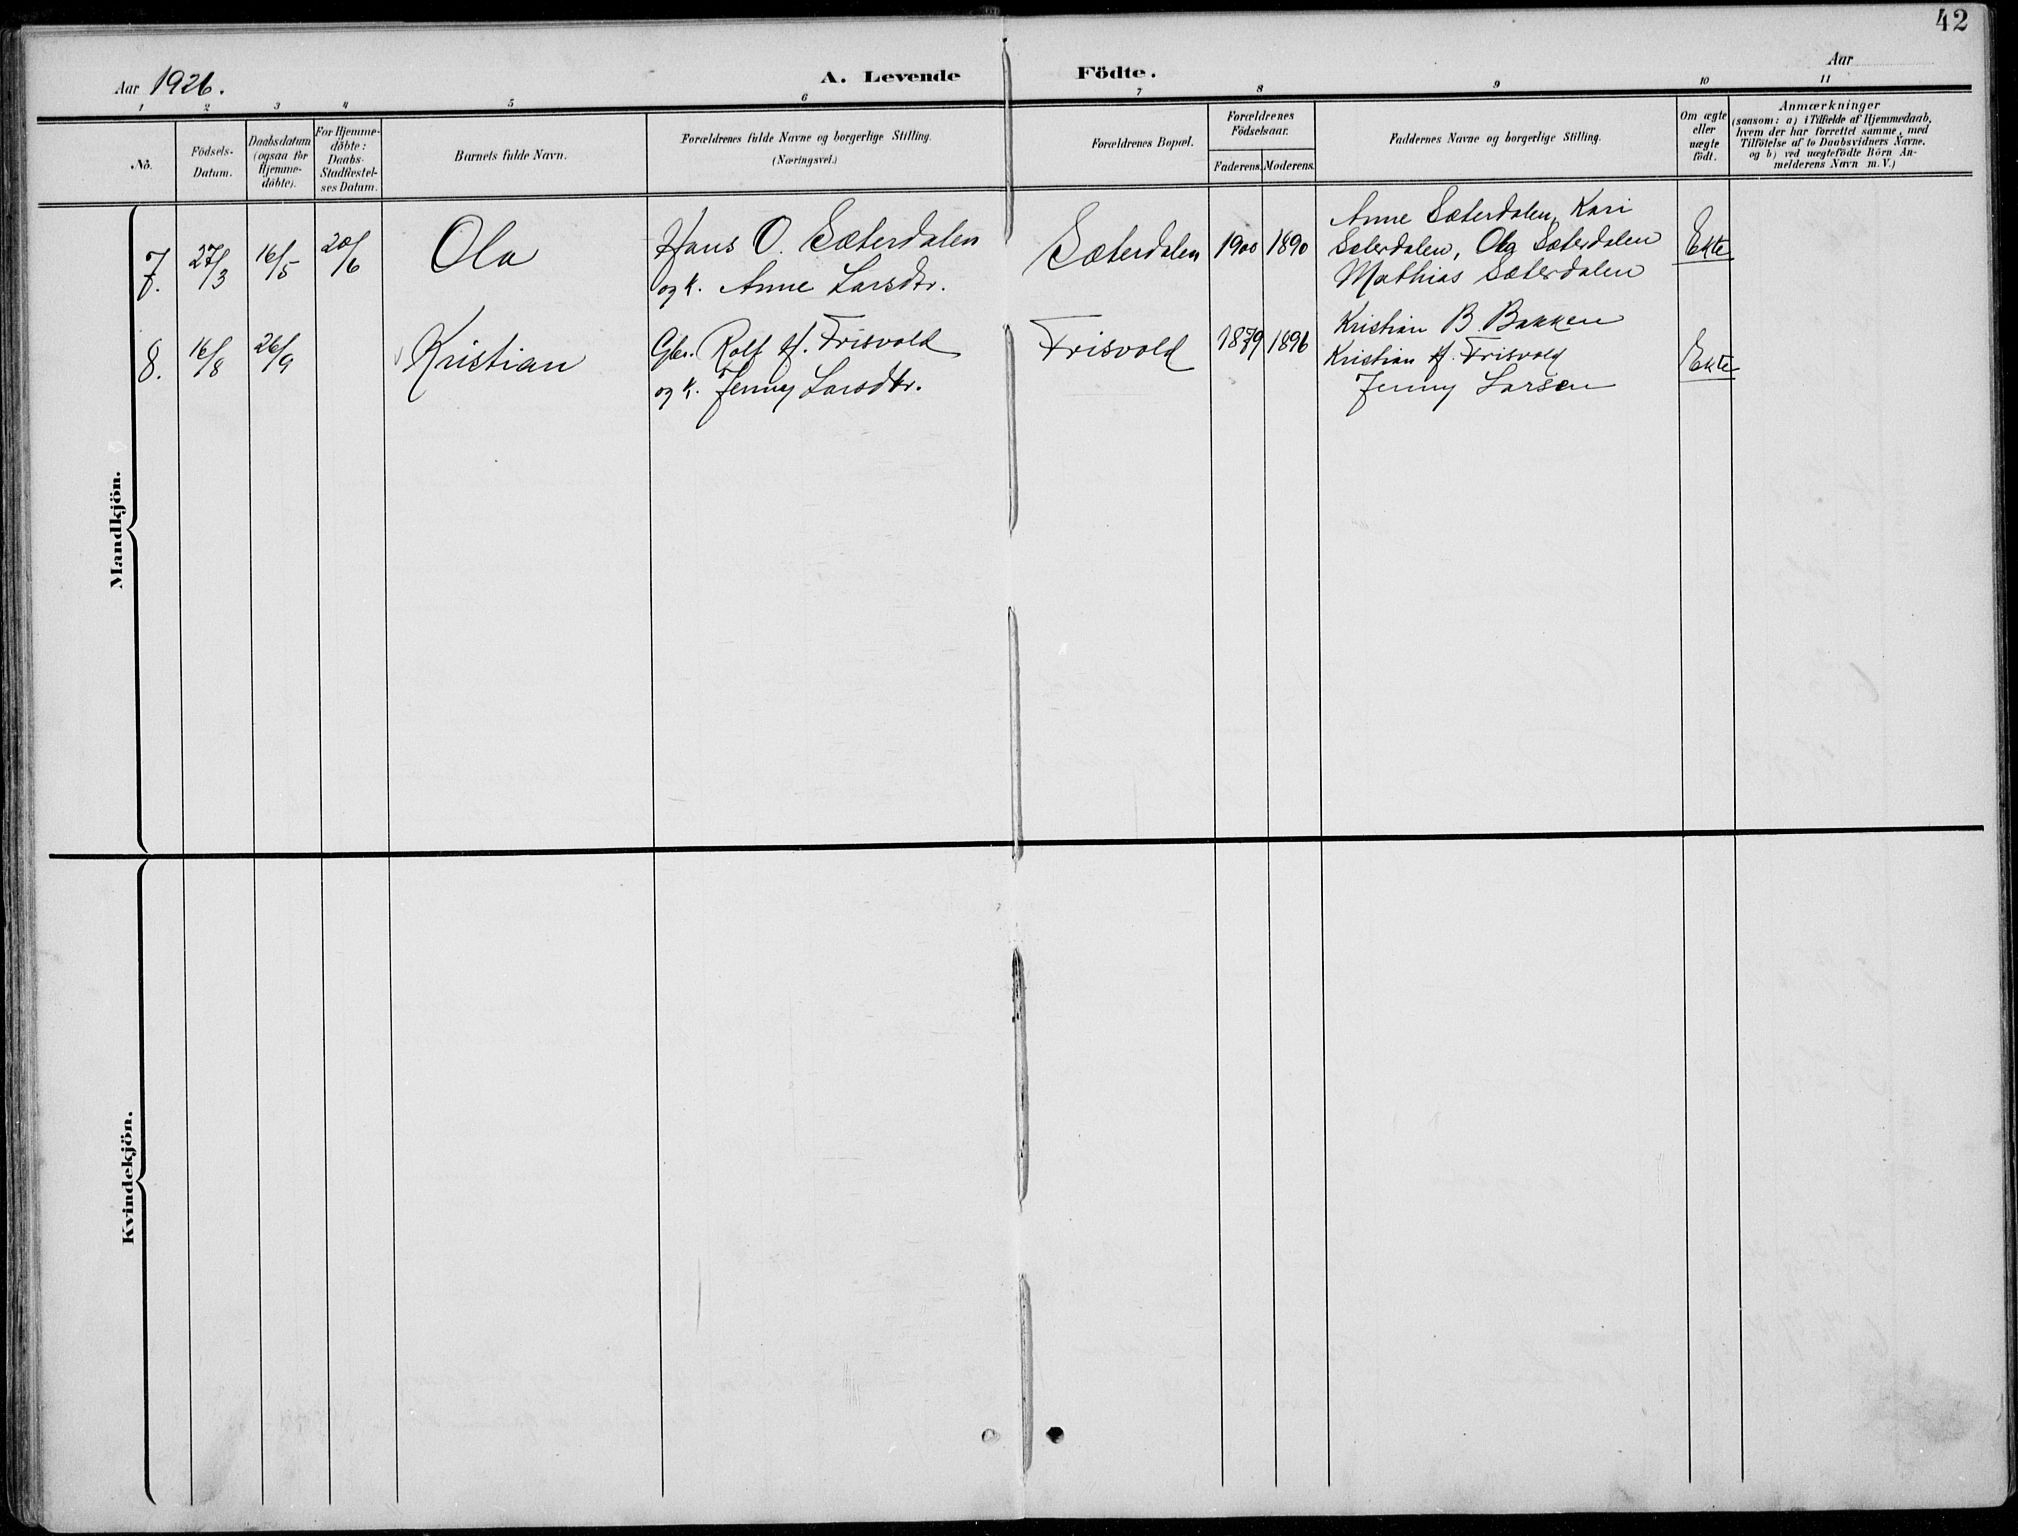 42
Aar 1926.
A. Levende Födte.
Aar
1 2 3 4 5 6 7 8 9 10 11
No.
Födsels-
Datum.
Daabsdatum
(ogsaa for
Hjemme-
döbte).
For Hjemme-
döbte:
Daabs-
Stadfæstel-
ses Datum.
Barnets fulde Navn.
Forældrenes fulde Navne og borgerlige Stilling.
(Næringsvei.)
Forældrenes Bopæl.
Forældrenes
Födselsaar.
Faderens. Moderens.
Faddernes Navne og borgerlige Stilling.
Om ægte
eller
uægte
født.
Anmærkninger
(saasom: a) i Tilfælde af Hjemmedaab,
hvem der har forrettet samme, med
Tilföielse af to Daabsvidners Navne,
og b) ved uægtefödte Börn An-
melderens Navn m. V.)
Mandkjön.
7. 27/3 16/5 20/6 Ola
Hans O. Sæterdalen
og k. Anne Larsdtr.
Sæterdalen 1900 1890
Anne Sæterdalen, Kari
Sæterdalen, Ola Sæterdalen
Mathias Sæterdalen
Ekte
8. 16/8 26/9 Kristian
Gbr. Rolf H. Frisvold
og k. Jenny Larsdtr.
Frisvold 1879 1896
Kristian B. Bakken
Kristian H. Frisvold
Jenny Larsen
Ekte
Kvindekjön.